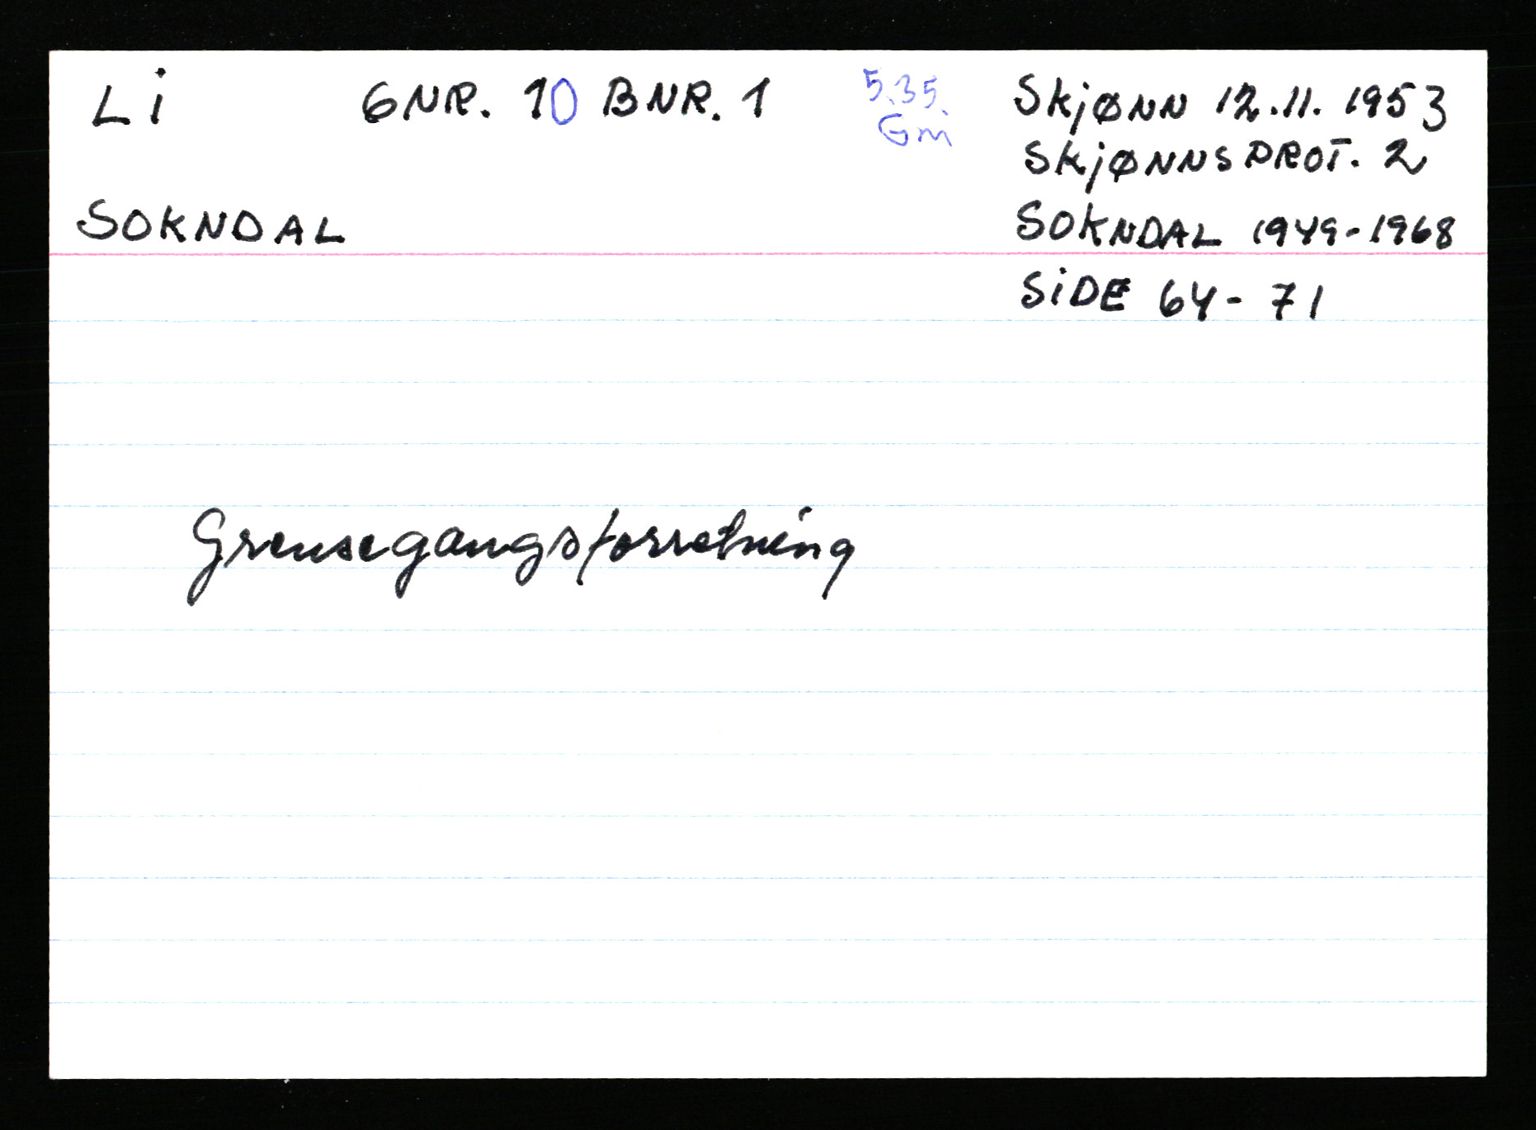 Li GNR. 10 BNR. 1 5.35. Skjønn 12.11.1953
Gm Skjønnsprot. 2
SOKNDAL SOKNDAL 1949-1968
SIDE 64-71
Grensegangsforretning